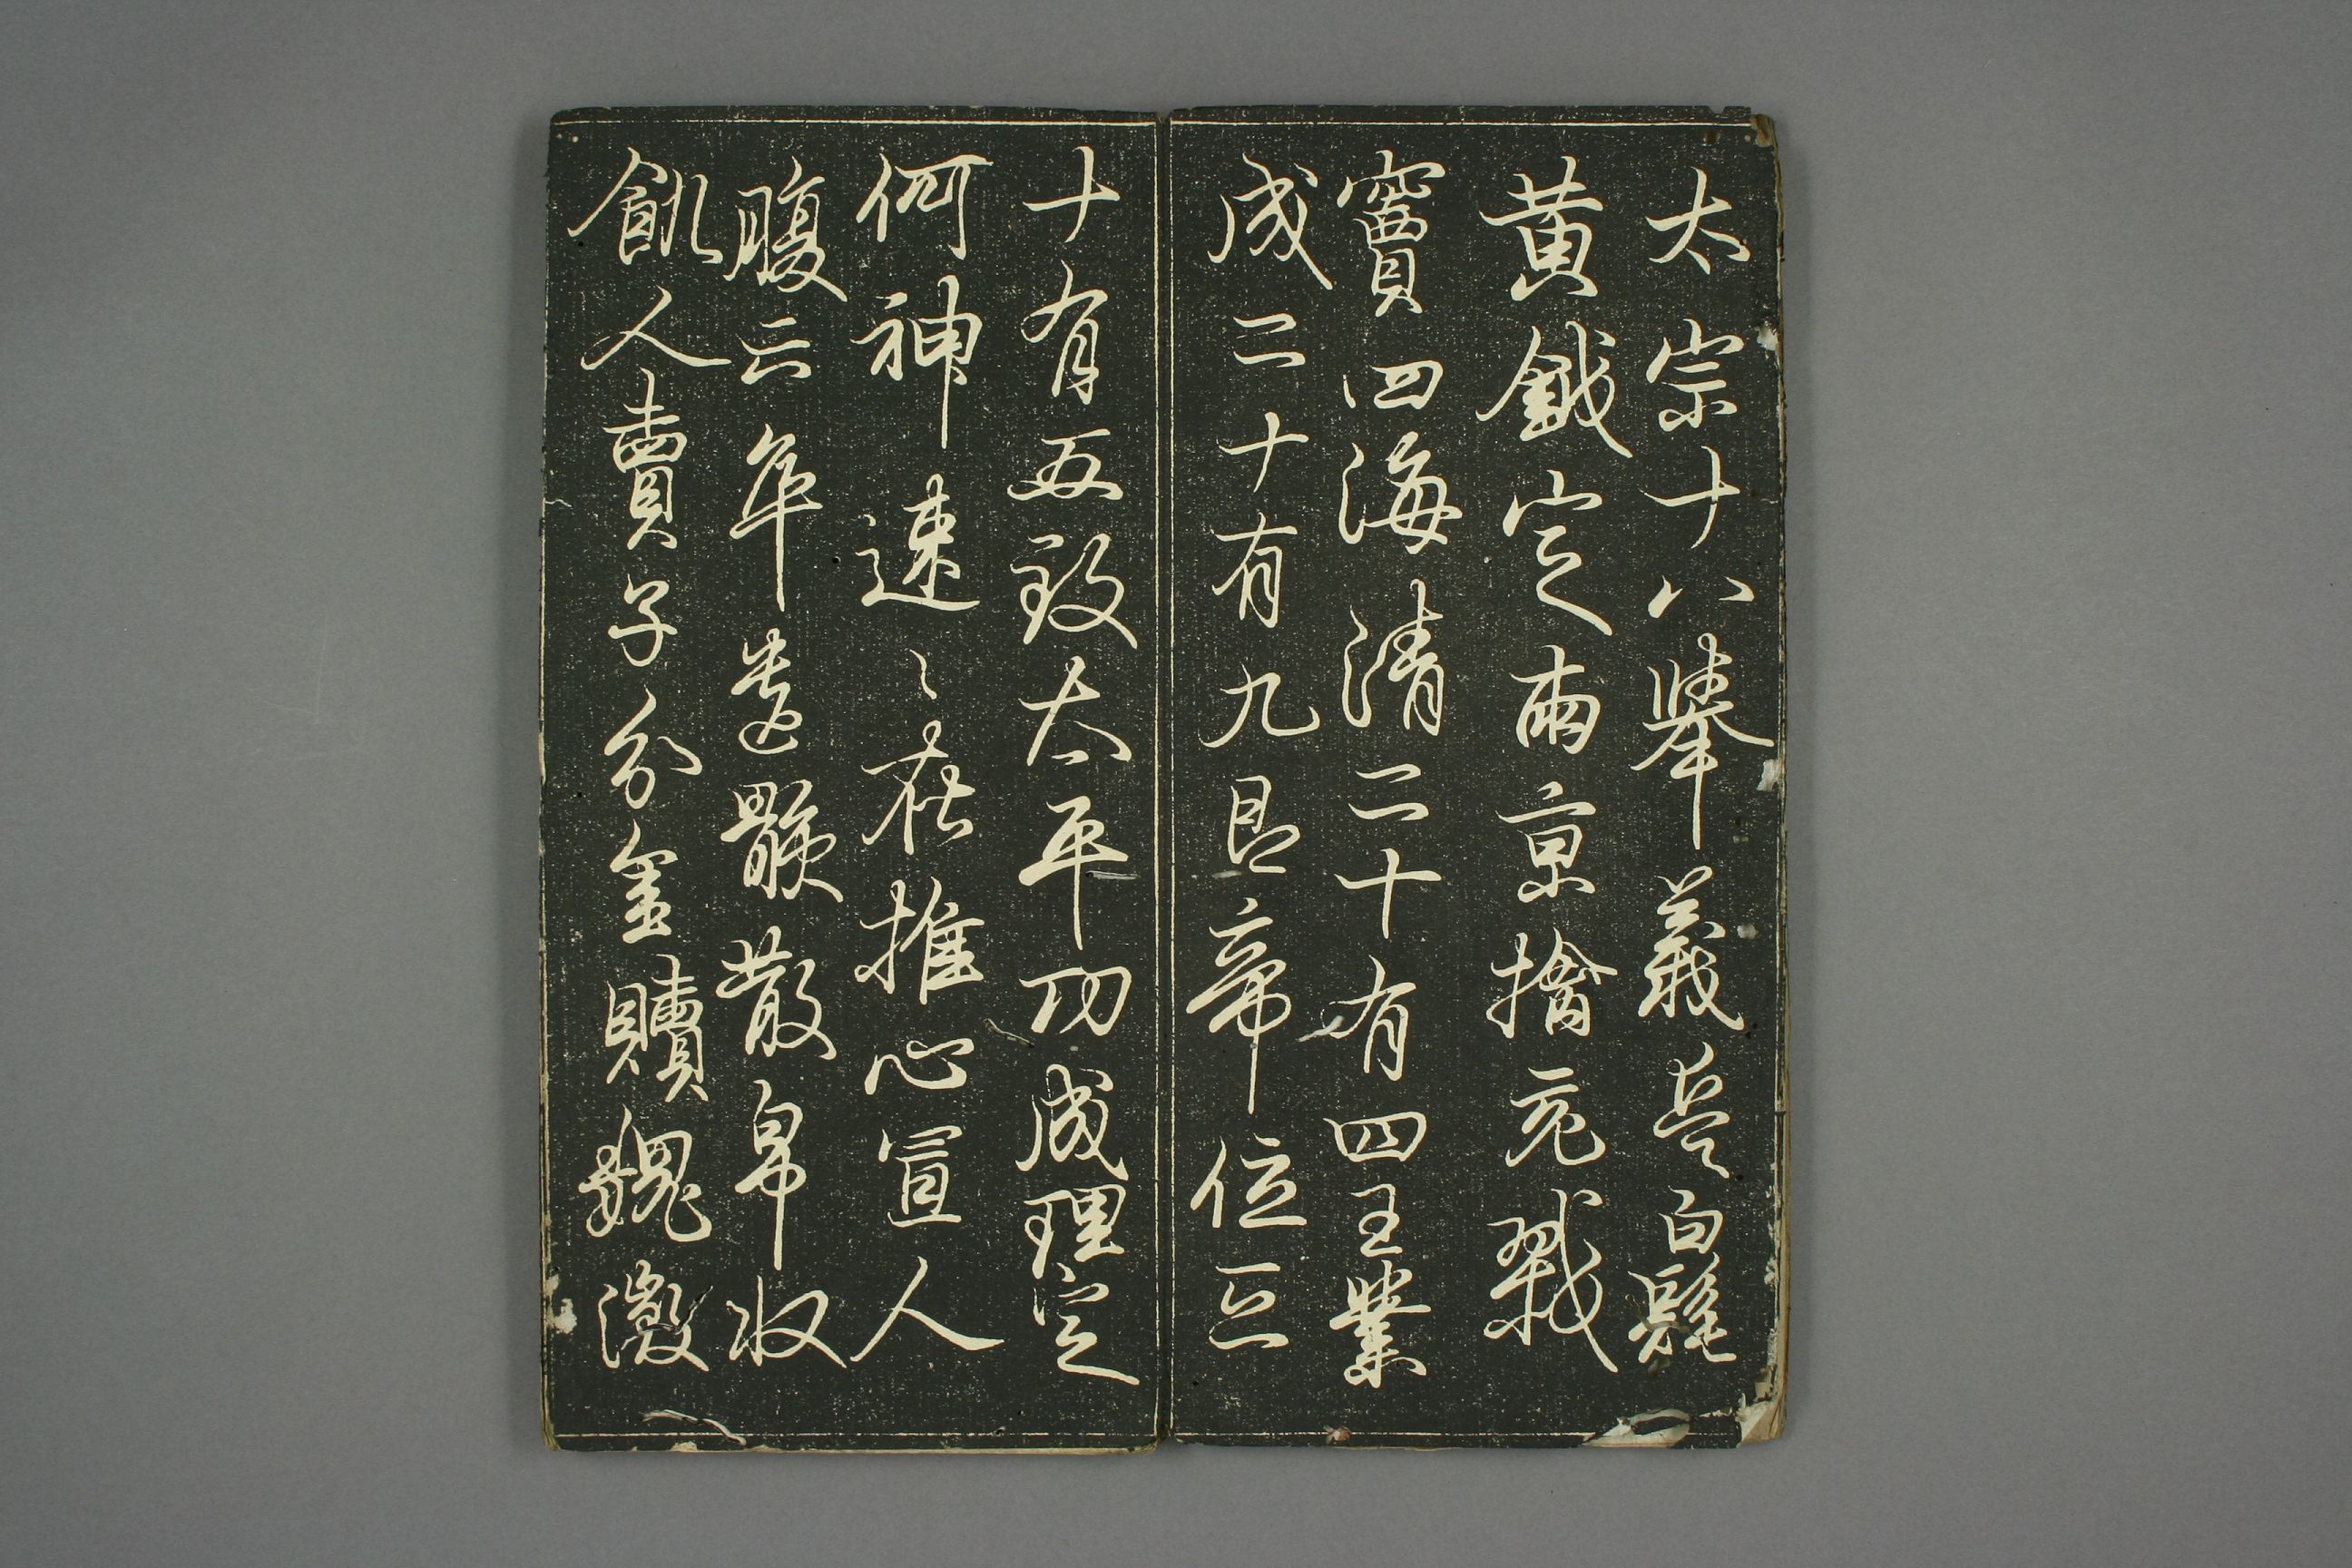 太宗十八舉義兵白髦
黃鉞定兩京擒充戮
竇四海清二十有四王業
成二十有九即帝位三
十有五致太平功成理定
何神速〻在推心置人
腹亡卒遺骸散帛收
飢人賣子分金贖魏徵